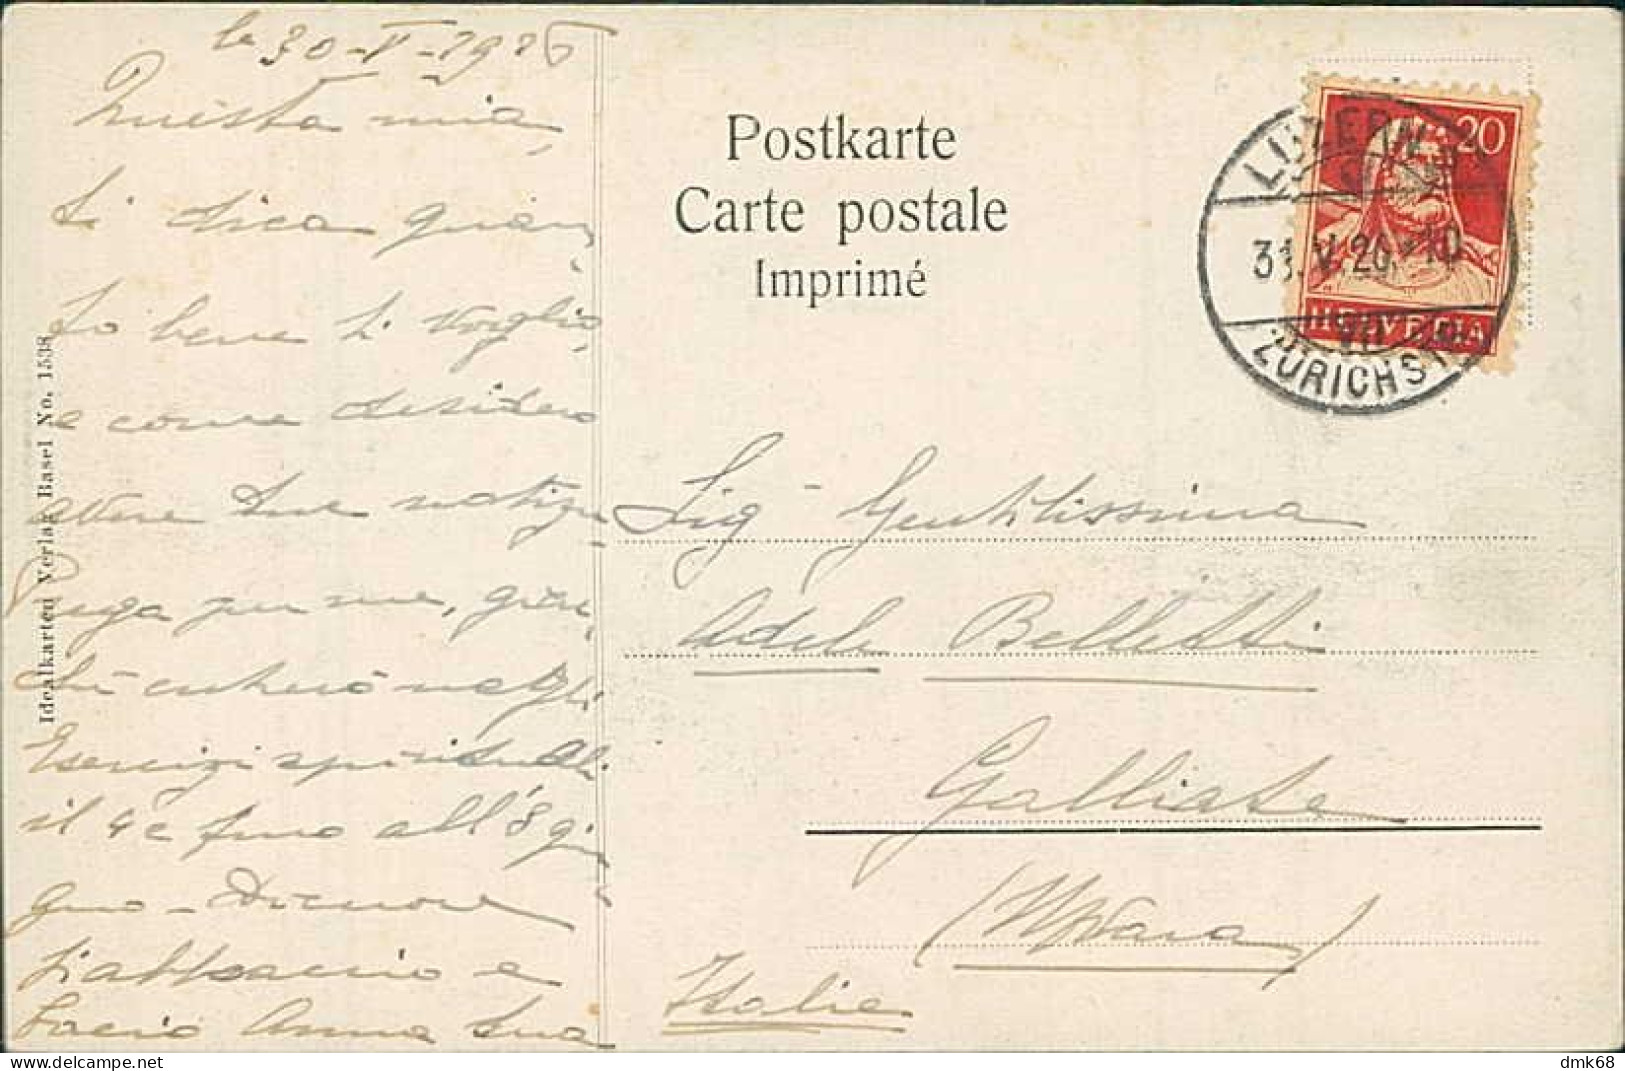 le 30-V-1926
Questa mia
ti dica quan
to bene ti voglio
e come desidero
avere tue notizie
Prega per me,
Esercizi spirituali
il 4 e fino all'8 giu
gno -
ti abbraccio e
bacio Anna tua
Idealkarten Verlag Basel No. 1538
Postkarte
Carte postale
Imprimé
20
HELVETIA
LUZERN
31.V.26.-10
VII
ZÜRICHSTR.
Sig. Gentilissima
Adele Belletti
Galliate
(Novara)
Italie
dmk68